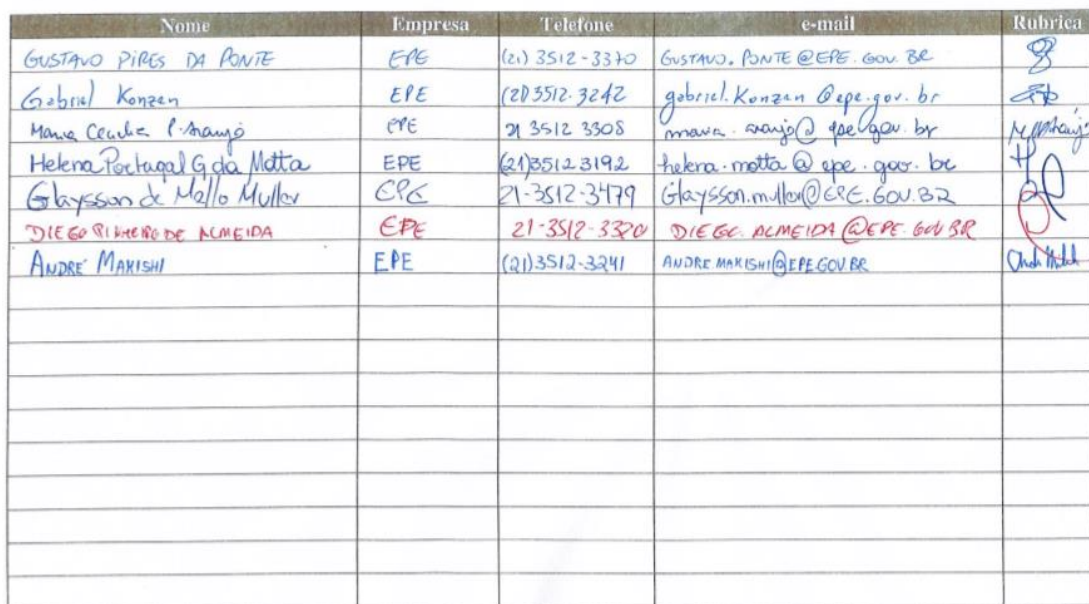 Nome Empresa Telefone e-mail Rubrica
GUSTAVO PIRES DA PONTE EPE (21) 3512-3370 GUSTAVO.PONTE@EPE.GOV.BR
Gabriel Konzen EPE (21) 3512-3242 gabriel.Konzen@epe.gov.br
Maria Cecilia P. Araujo EPE 21 3512 3308 maria.araujo@epe.gov.br
Helena Portugal G da Motta EPE (21)3512 3192 helena.motta@epe.gov.br
Glaysson de Mello Muller EPE 21-3512-3479 Glaysson.muller@EPE.GOV.BR
DIEGO PINHEIRO DE ALMEIDA EPE 21-3512-3320 DIEGO.ALMEIDA@EPE.GOV BR
ANDRÉ MAKISHI EPE (21)3512-3241 ANDRE MAKISHI@EPE GOV BR